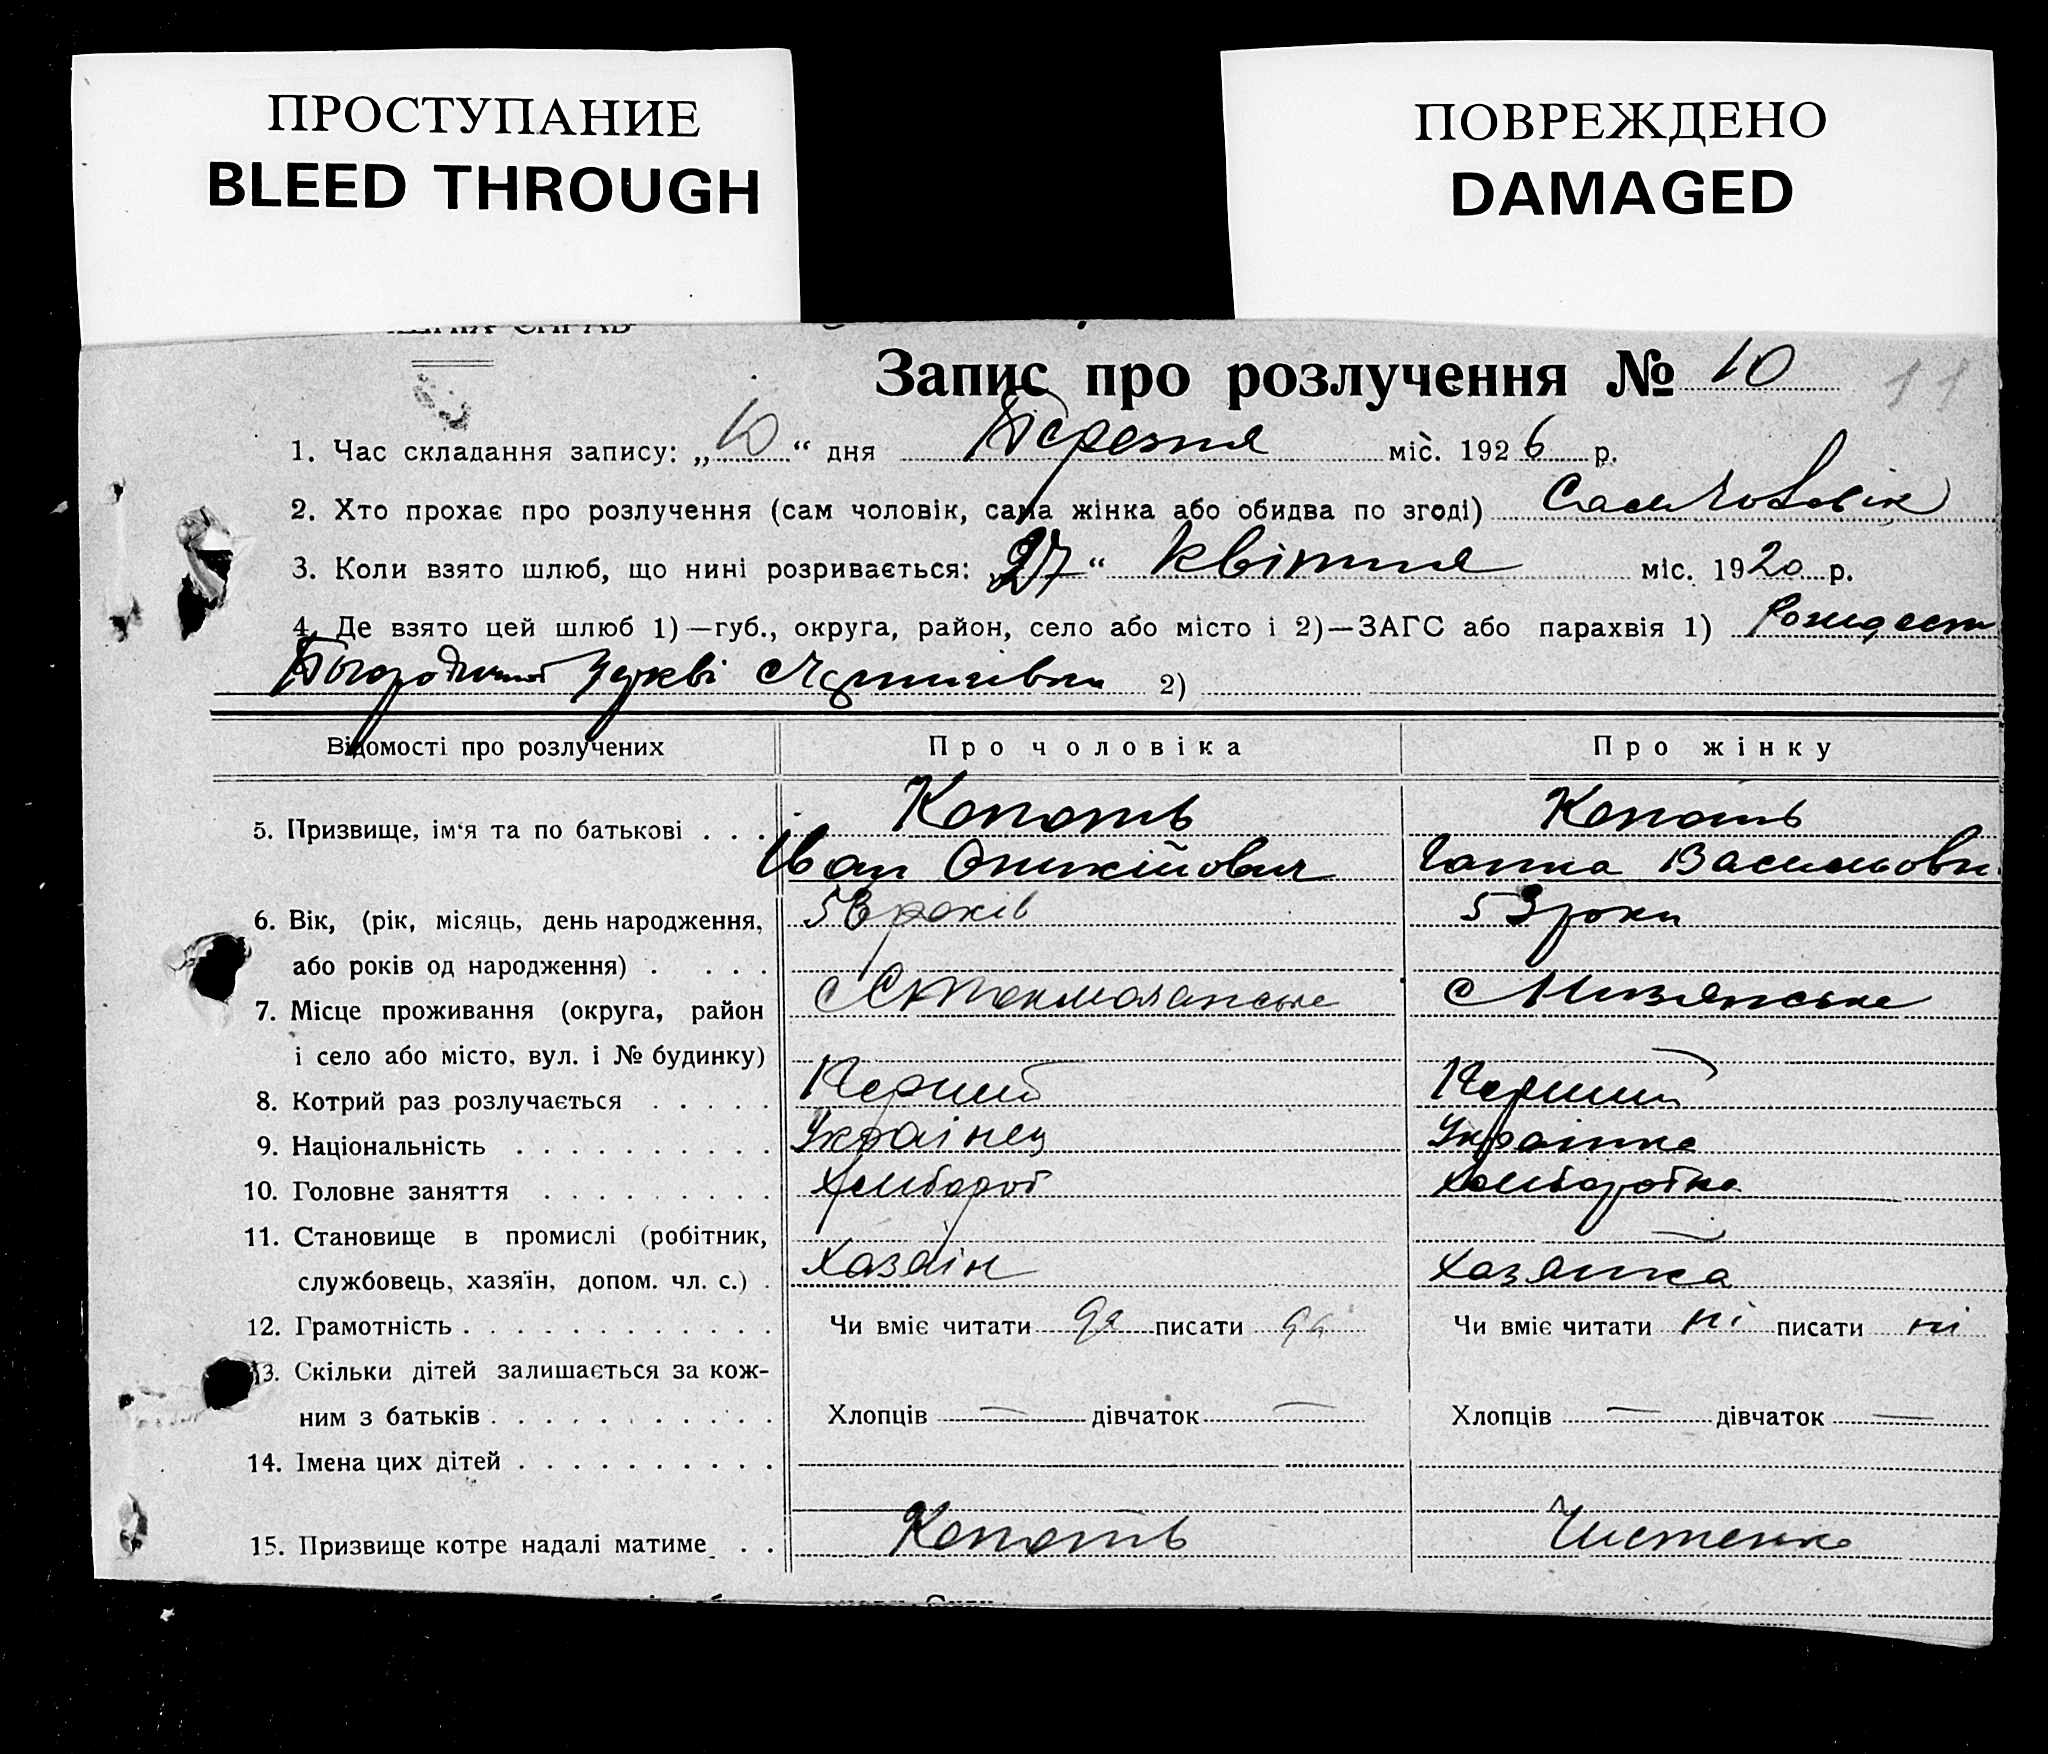 ПРОСТУПАНИЕ
BLEED THROUGH
ПОВРЕЖДЕНО
DAMAGED
Запис про розлучення № 10 11
1. Час складання запису: „10“ дня Березня міс. 1926 р.
2. Хто прохає про розлучення (сам чоловік, сама жінка або обидва по згоді) Сам Чоловік
3. Коли взято шлюб, що нині розривається: „27“ квітня міс. 1920 р.
4. Де взято цей шлюб 1)—губ., округа, район, село або місто і 2)—ЗАГС або парахвія 1)
2)
Відомості про розлучених Про чоловіка Про жінку
Копоть Копоть
5. Призвище, ім‘я та по батькові . . .
Іван Ганна Васильовн
6. Вік, (рік, місяць, день народження, років 53 роки
або років од народження) . . . .
7. Місце проживання (округа, район с с
і село або місто, вул. і № будинку)
8. Котрий раз розлучається . . . . . Перший Перший
9. Національність . . . . . . . . . . Українец Українка
10. Головне заняття . . . . . . . . . Хлибороб Хлиборобка
11. Становище в промислі (робітник,
службовець, хазяїн, допом. чл. с.) . Хазяін Хазяйка
12. Грамотність . . . . . . . . . . . . Чи вміє читати да писати да Чи вміє читати ні писати ні
13. Скільки дітей залишається за кож-
ним з батьків . . . . . . . . . . . Хлопців — дівчаток — Хлопців — дівчаток —
14. Імена цих дітей . . . . . . . . . .
15. Призвище котре надалі матиме . . Копоть Чистенко